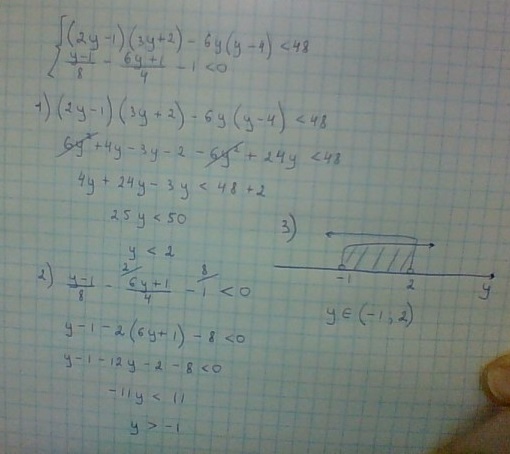 { (2y-1)(3y+2) - 6y(y-4) < 48
(y-1)/8 - (6y+1)/4 - 1 < 0
1) (2y-1)(3y+2) - 6y(y-4) < 48
6y² + 4y - 3y - 2 - 6y² + 24y < 48
4y + 24y - 3y < 48 + 2
25y < 50
y < 2
2) (y-1)/8 - (6y+1)/4 - 1 < 0
2 8
y-1-2(6y+1)-8<0
y-1-12y-2-8<0
-11y < 11
y > -1
3)
-1 2 y
y ∈ (-1; 2)